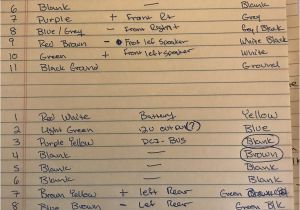 6 Blank — Blank
7 Purple + Front Rt Gray
8 Blue/Grey - Front Right Grey/Black
9 Red Brown - Front left speaker White Black
10 Green + Front left speaker White
11 Black Ground Ground
1 Red White Battery Yellow
2 Light Green 12V output(?) Blue
3 Purple Yellow - BUS Blank
4 Blank — Brown
5 Blank — Blank
6 Blank — Blank
7 Brown Yellow + left Rear Green
8 Blue Brown - Left Rear Green